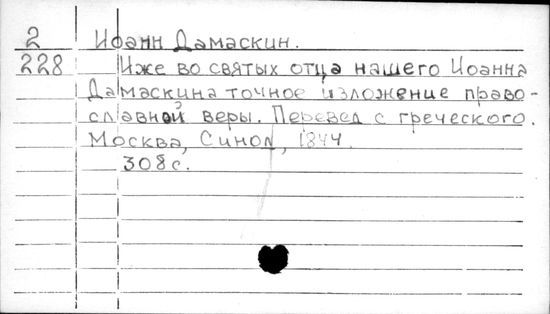 2 Иоанн Дамаскин.
228 Иже во святых отца нашего Иоанна
Дамаскина точное изложение право-
славной веры. Перевед с греческого.
Москва, Синод, 1844.
308 с.